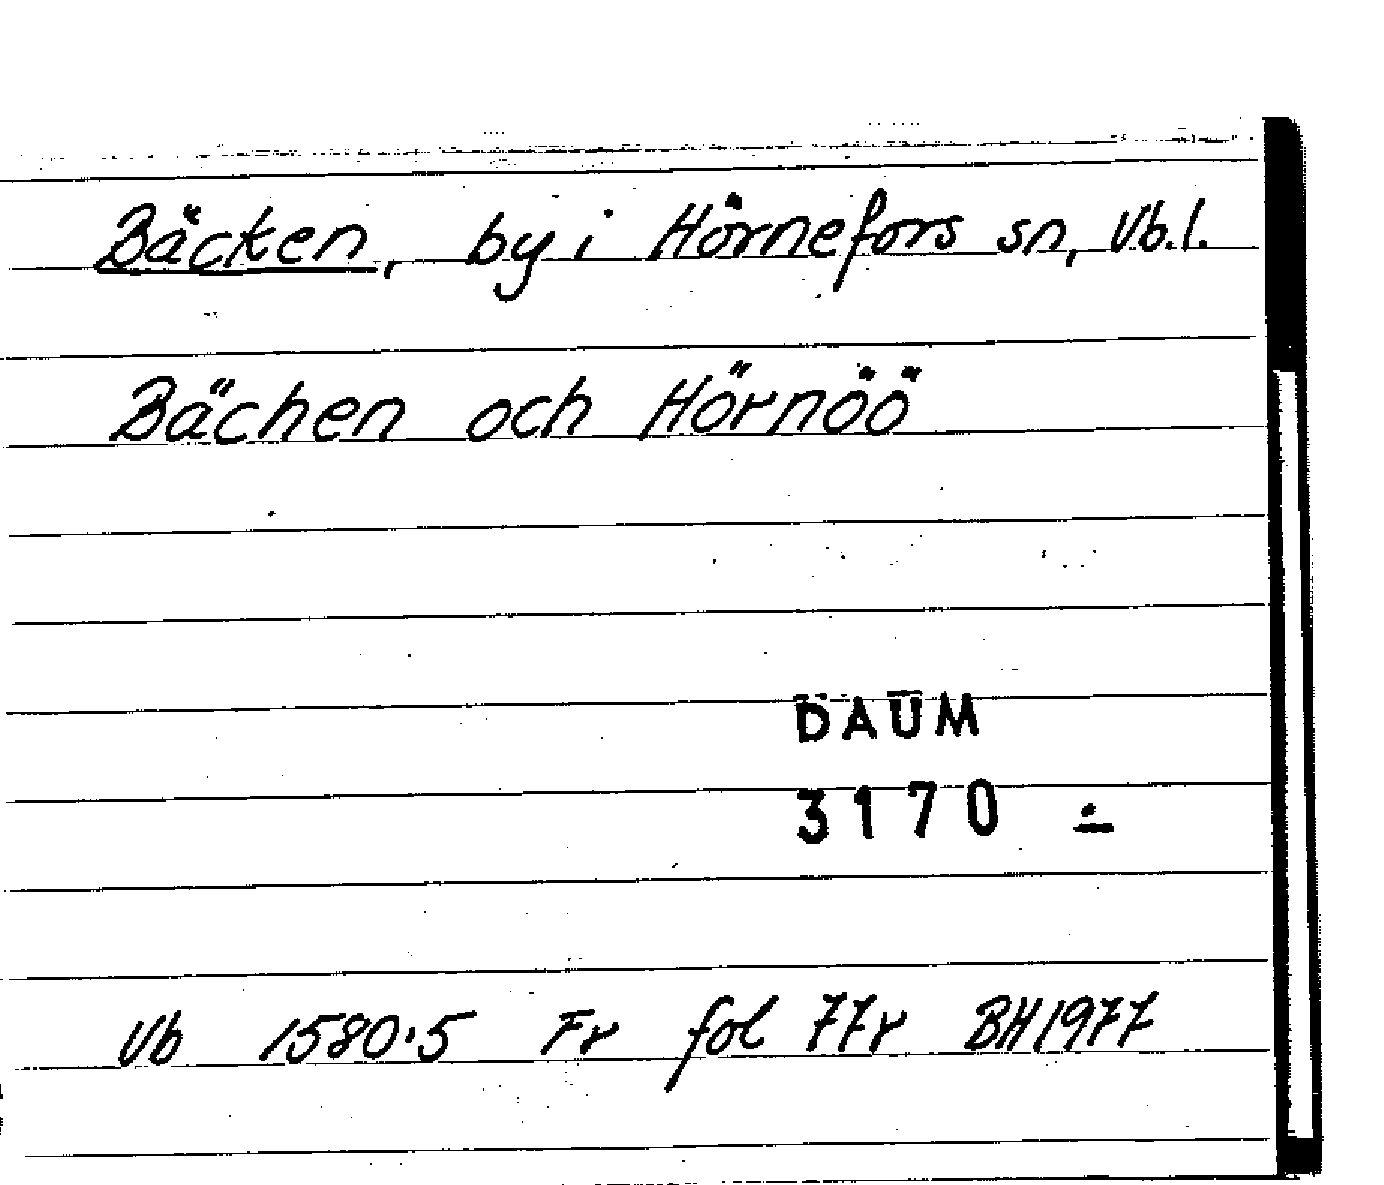 Bäcken, by i Hörnefors sn, Vb.l.
Bächen och Hörnöö
DAUM
3170 -
Vb 1580:5 Fr fol 77r BH1977